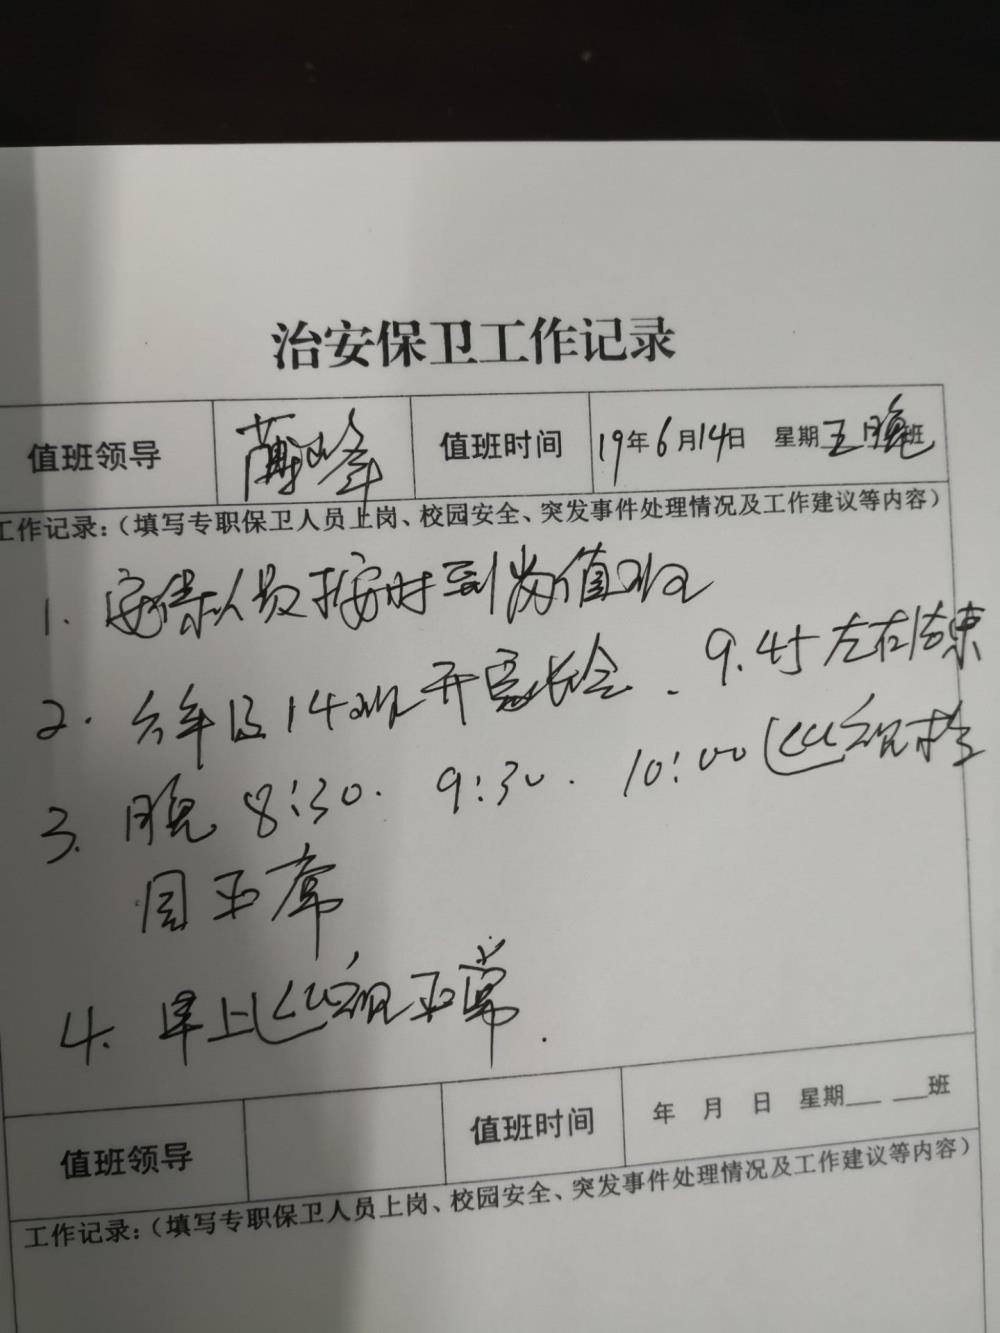 治安保卫工作记录
值班领导 薄峰 值班时间 19年6月14日 星期五 晚班
工作记录：（填写专职保卫人员上岗、校园安全、突发事件处理情况及工作建议等内容）
1. 安保人员按时到岗值班
2. 六年级14班开家长会. 9.45左右结束
3. 晚8:30. 9:30. 10:00巡视校
园正常
4. 早上巡视正常.
值班领导 值班时间 年 月 日 星期___ ___班
工作记录：（填写专职保卫人员上岗、校园安全、突发事件处理情况及工作建议等内容）